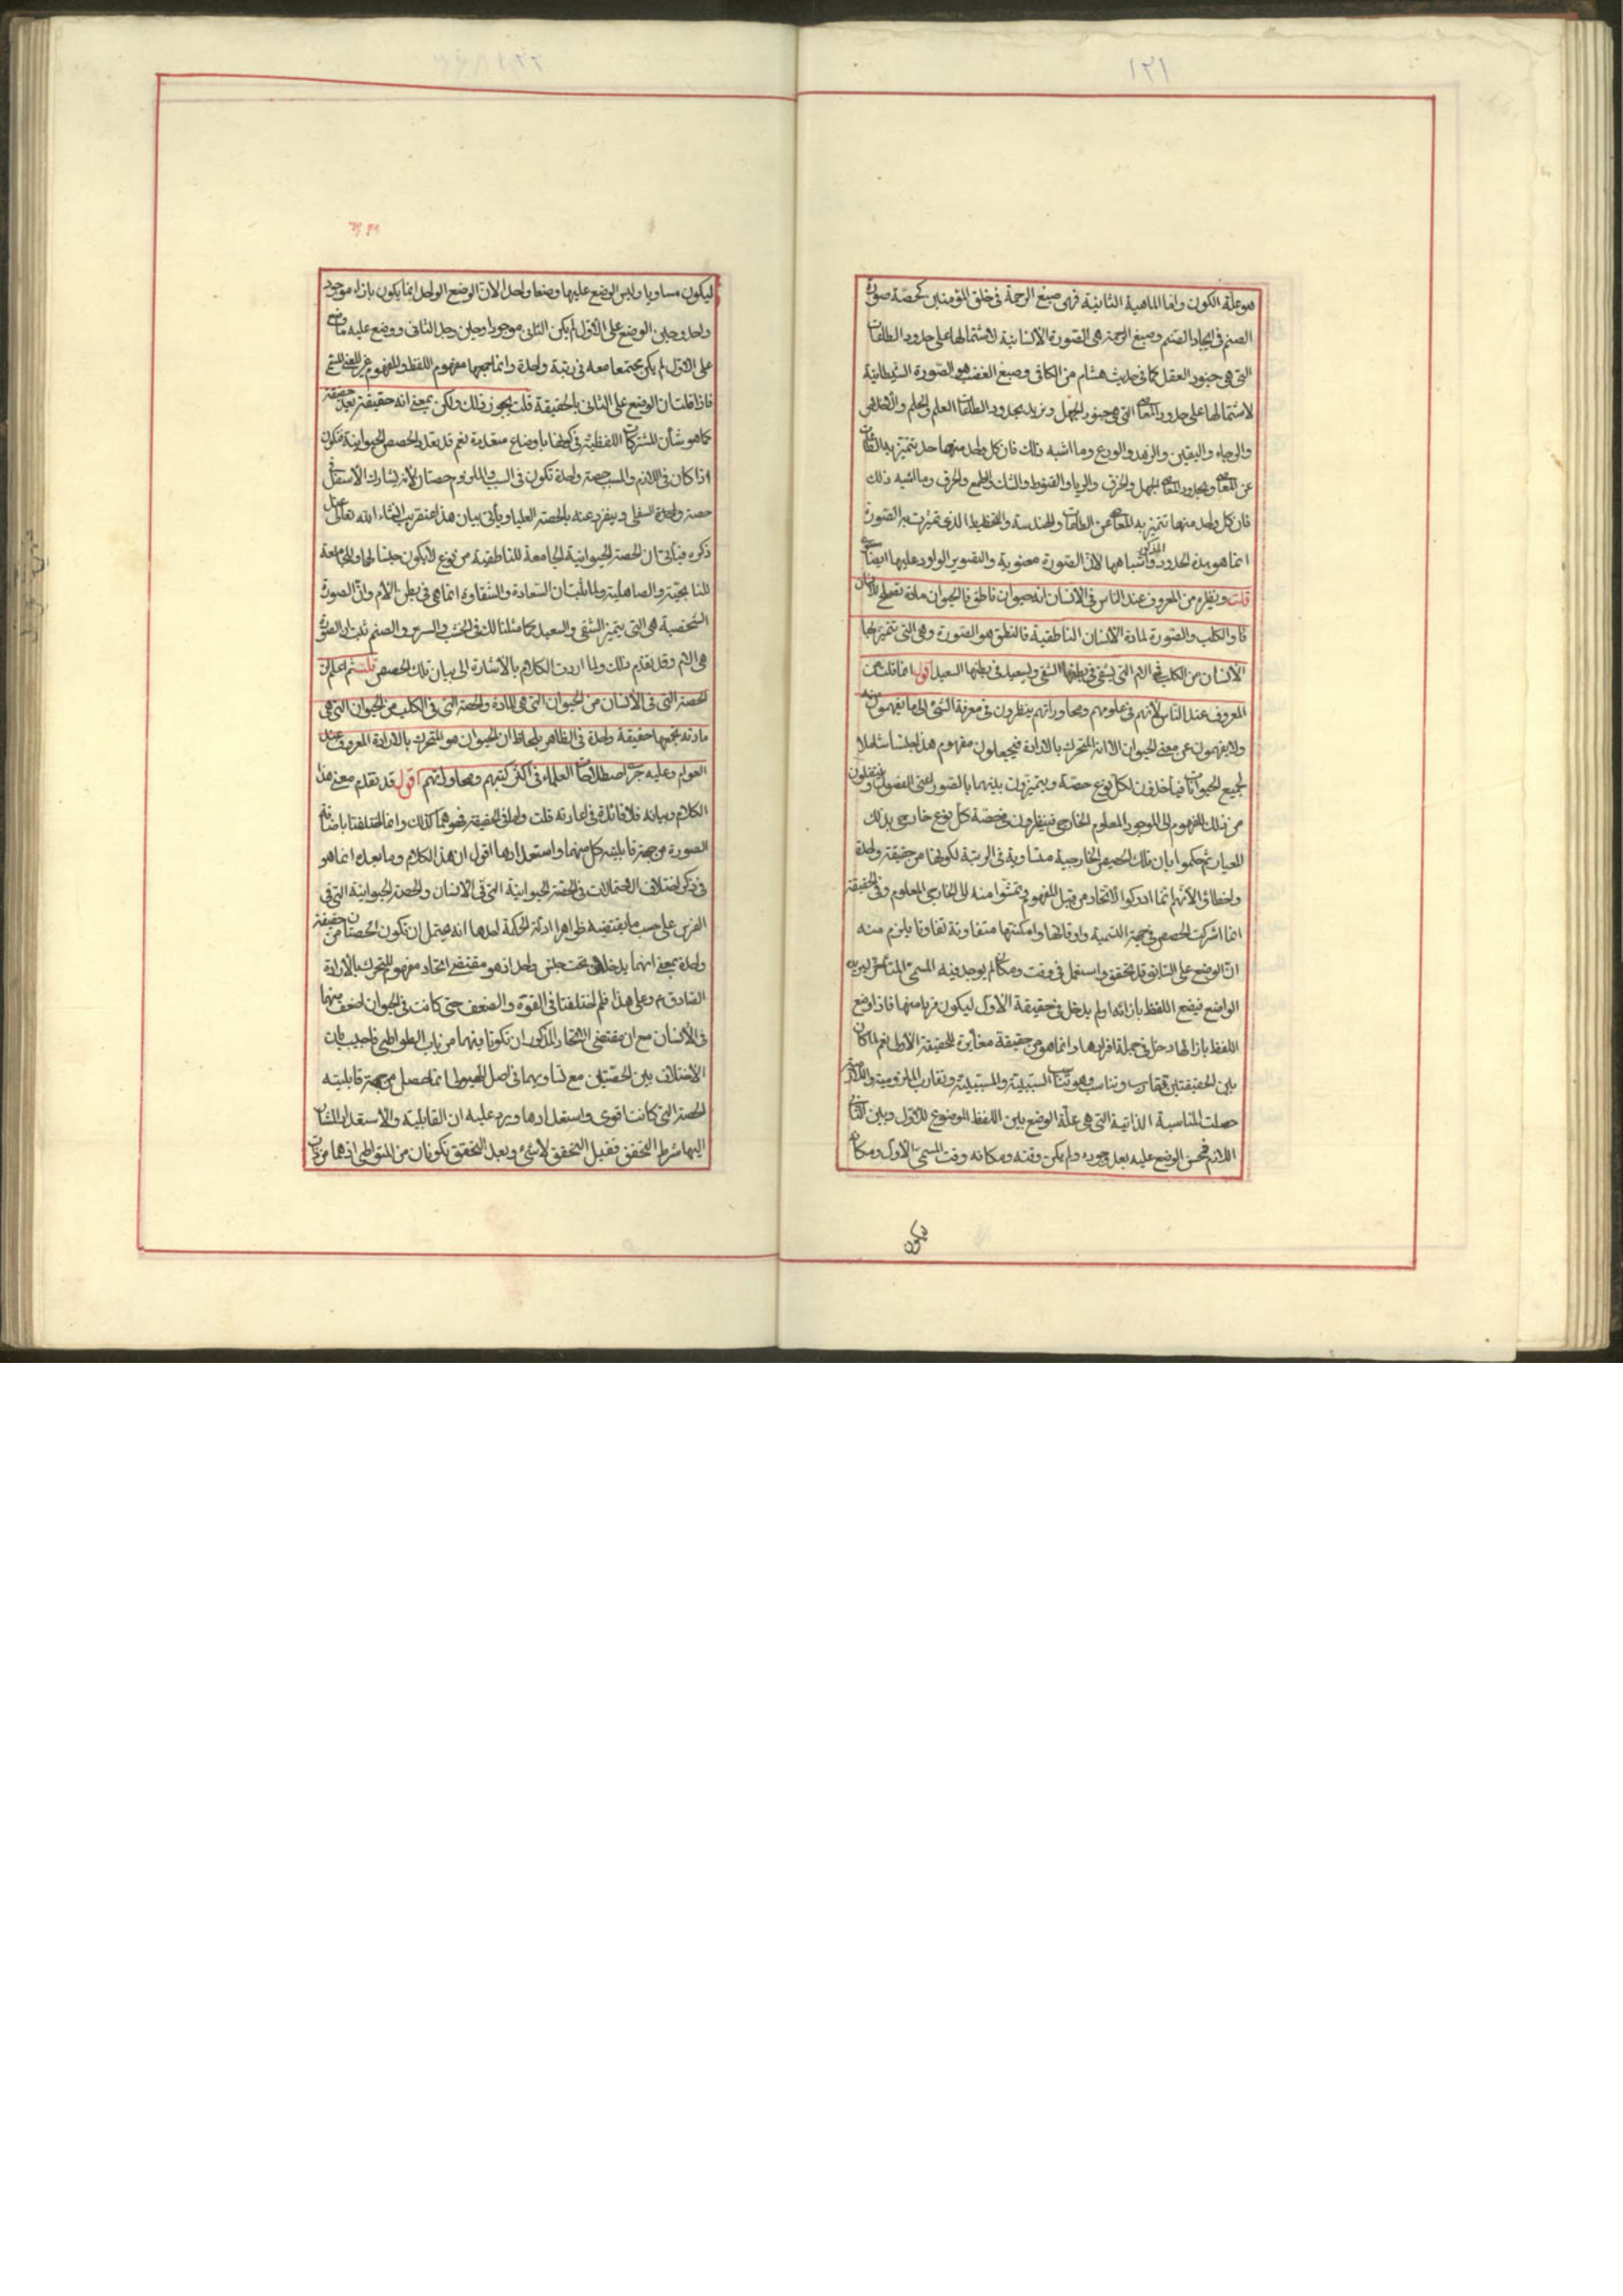 ١٢١
هو علة الكون واما الماهية الثانية فهى صبغ الرحمة فى خلق المؤمنين كحصة صورة
الصنم فى ايجاد الصنم وصبغ الرحمة هى الصورة الانسانية لاشتمالها على حدود الطاعات
التى هى جنود العقل كما فى حديث هشام من الكافى وصبغ الغضب هو الصورة الشيطانية
لاشتمالها على حدود المعاصى التى هى جنود الجهل ونريد بحدود الطاعات العلم والحلم والاخلاص
والرجاء واليقين والزهد والورع وما اشبه ذلك فان كل واحد منها حد يتميز به الطاعات
عن المعاصى وبحدود المعاصى الجهل والخرق والريا والقنوط والشك والطمع والخرق وما اشبه ذلك
فان كل واحد منها تتميز به المعاصى عن الطاعات والهندسة والتخطيط الذى تميزت به الصورة
انما هو بهذه الحدود المذكورة واشباهها لان الصورة معنوية والتصوير الوارد عليها ايضا
قلت ونظيره من المعروف عند الناس فى الانسان انه حيوان ناطق فالحيوان مادة تصلح للانسان
والكلب والصورة لمادة الانسان الناطقية فالنطق هو الصورة وهى التى تتميز بها
الانسان من الكلب فهى الام التى يشقى فى بطنها الشقى ويسعد فى بطنها السعيد اقول انما قلت من
المعروف عند الناس لانهم فى علومهم ومحاوراتهم ينظرون فى معرفة الشئ الى ما يفهمون منه
ولا يفهمون من معنى الحيوان الا انه المتحرك بالارادة فيجعلون مفهوم هذا جنسا شاملا
لجميع الحيوانات فياخذون لكل نوع حصة ويتميزون بينها بالصور اعنى الفصول وينتقلون
من ذلك المفهوم الى الموجود المعلوم الخارجى فينظرون فى حصة كل نوع خارجى بذلك
المعيار ثم حكموا بان تلك الحصص الخارجية متساوية فى الرتبة لكونها من حقيقة واحدة
واخطاؤا لانهم انما ادركوا الاتحاد من قبل المفهوم وتمشوا منه الى الخارجى المعلوم وفى الحقيقة
انما اشتركت الحصص فى جهة التسمية واوقاتها وامكنتها متفاوتة تفاوتا يلزم منه
ان الوضع على السابق قد تحقق واستعمل فى وقت ومكان لم يوجد فيه المسمى المتاخر
الواضع فيضع اللفظ بازائه ولم يدخل فى حقيقة الاول ليكون فردا منها فاذا وضع
اللفظ بازائها دخل فى جملة افرادها وانما هو من حقيقة مغايرة للحقيقة الاولى نعم لما كان
بين الحقيقتين تقارب وتناسب وهو تناسب السببية والمسببية وتقارب الملزومية واللازمية
حصلت المناسبة الذاتية التى هى علة الوضع بين اللفظ الموضوع للاول وبين الثانى
اللازم فحسن الوضع عليه بعد وجوده ولم يكن وقته ومكانه وقت المسمى الاول ومكانه
ليكون
ليكون مساويا وليس الوضع عليها وضعا واحدا لان الوضع الواحد انما يكون بازاء موجود
واحد وحين الوضع على الاول لم يكن الثانى موجودا وحين وجد الثانى ووضع عليه ما وضع
على الاول لم يكن مجتمعا معه فى رتبة واحدة وانما جمعها مفهوم اللفظ والمفهوم غير المعنى
فاذا قلت ان الوضع على الثانى بالحقيقة قلت يجوز ذلك ولكن بمعنى انه حقيقة بعد حقيقة
كما هو شأن المشتركات اللفظية فى كونها باوضاع متعددة نعم قد تعدد الحصص الحيوانية فتكون
اذا كان فى اللازم والمسبب حصة واحدة تكون فى السبب والملزوم حصتان لانه يشارك الاسفل فى
حصة واحدة السفلى وينفرد عنه بالحصة العليا ويأتى بيان هذا عنقريب انشاء الله تعالى عند
ذكره فيأتى ان الحصة الحيوانية الجامعة للناطقية من نوع لا يكون جنسا لها وللجامعة
للنابحية والصاهلية ولما ثبت ان السعادة والشقاوة انما هى فى بطن الام وان الصورة
الشخصية هى التى يتميز الشقى والسعيد كما مثلنا لك فى الخشب والسرير والصنم ثبت ان الصورة
هى الام وقد تقدم ذلك ولما اردت الكلام بالاشارة الى بيان تلك الحصص قلت ثم اعلم ان
الحصة التى فى الانسان من الحيوان التى هى المادة والحصة التى فى الكلب من الحيوان التى هى
مادته تجمعها حقيقة واحدة فى الظاهر بلحاظ ان الحيوان هو المتحرك بالارادة المعروف عند
العوام وعليه جرى اصطلاحات العلماء فى اكثر كتبهم ومحاوراتهم اقول قد تقدم معنى هذا
الكلام وبيانه فلا فائدة فى اعادته قلت واما فى الحقيقة فهو كذلك وانما اختلفتا باضافة
الصورة من جهة قابلية كل منهما واستعدادها اقول ان هذا الكلام وما بعده انما هو
فى ذكر اختلاف الاحتمالات فى الحصة الحيوانية التى فى الانسان والحصة الحيوانية التى فى
الفرس على حسب ما يقتضيه ظواهر ادلة الحكمة احدها انه يحتمل ان تكون الحصتان من حقيقة
واحدة بمعنى انهما يدخلان تحت جنس واحد اذ هو مقتضى اتحاد مفهوم المتحرك بالارادة
الصادق وعلى هذا فلم اختلفتا فى القوة والضعف حتى كانت فى الحيوان اضعف منها
فى الانسان مع ان مقتضى الاتحاد المذكور ان تكونا فيهما من باب المتواطى فاجيب بان
الاختلاف بين الحصتين مع تساويهما فى اصل الحيوان انما حصل من جهة قابلية
الحصة التى كانت اقوى واستعدادها ويرد عليه ان القابلية والاستعداد المشار
اليها شرط التحقق فقبل التحقق لا شئ وبعد التحقق تكونان من المتواطى اذ هما من باب